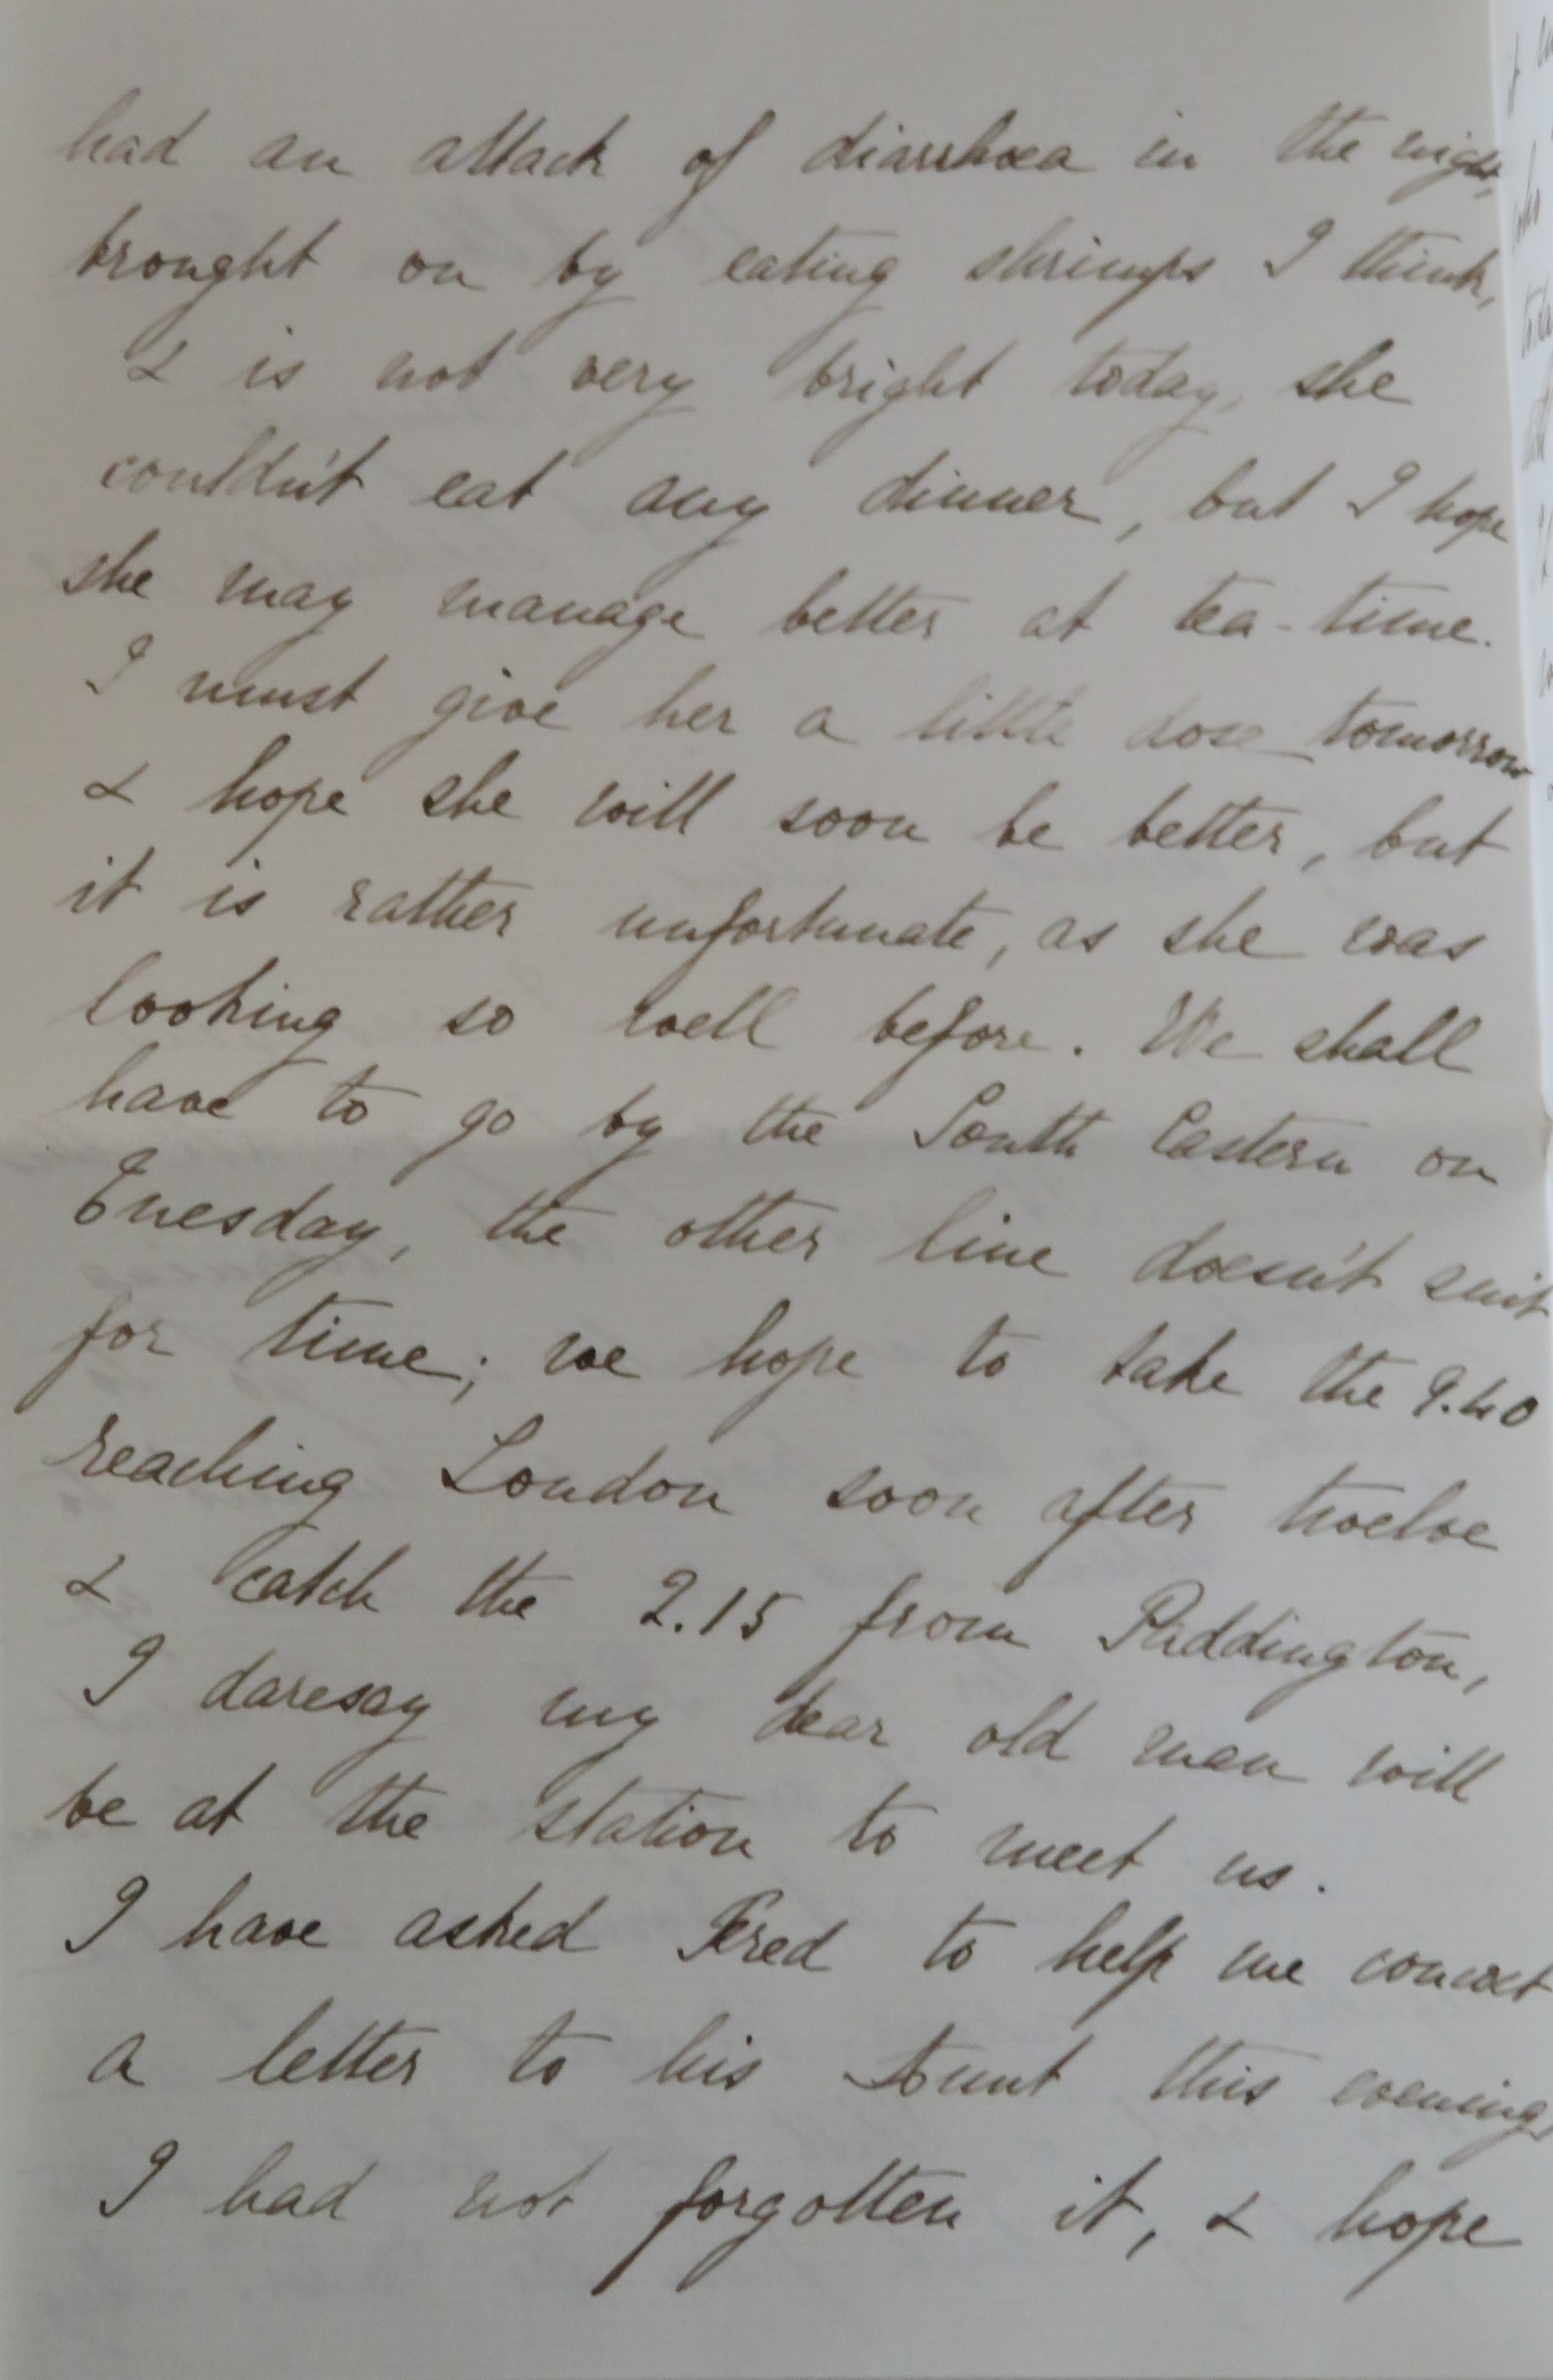 had an attack of diarrhœa in the night,
brought on by eating shrimps I think,
& is not very bright today, she
couldn't eat any dinner, but I hope
she may manage better at tea-time.
I must give her a little dose tomorrow
& hope she will soon be better, but
it is rather unfortunate, as she was
looking so well before. We shall
have to go by the South Eastern on
Tuesday, the other line doesn't suit
for time; we hope to take the 9.40
reaching London soon after twelve
& catch the 2.15 from Paddington,
I daresay my dear old man will
be at the station to meet us.
I have asked Fred to help me concoct
a letter to his Aunt this evening,
I had not forgotten it, & hope